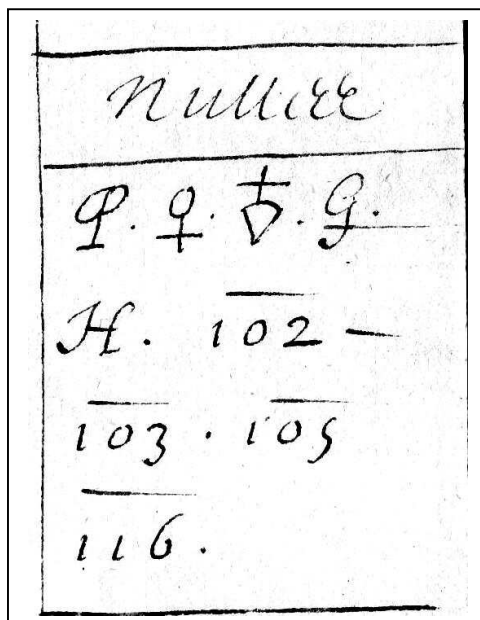 Nullæ
♀. G.
H. 1̅0̅2̅ –
1̅0̅3̅ . 1̅0̅5̅
1̅1̅6̅ .